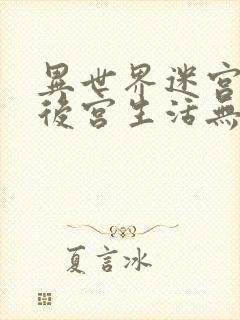 異世界迷宮
後宮生活無
夏言冰